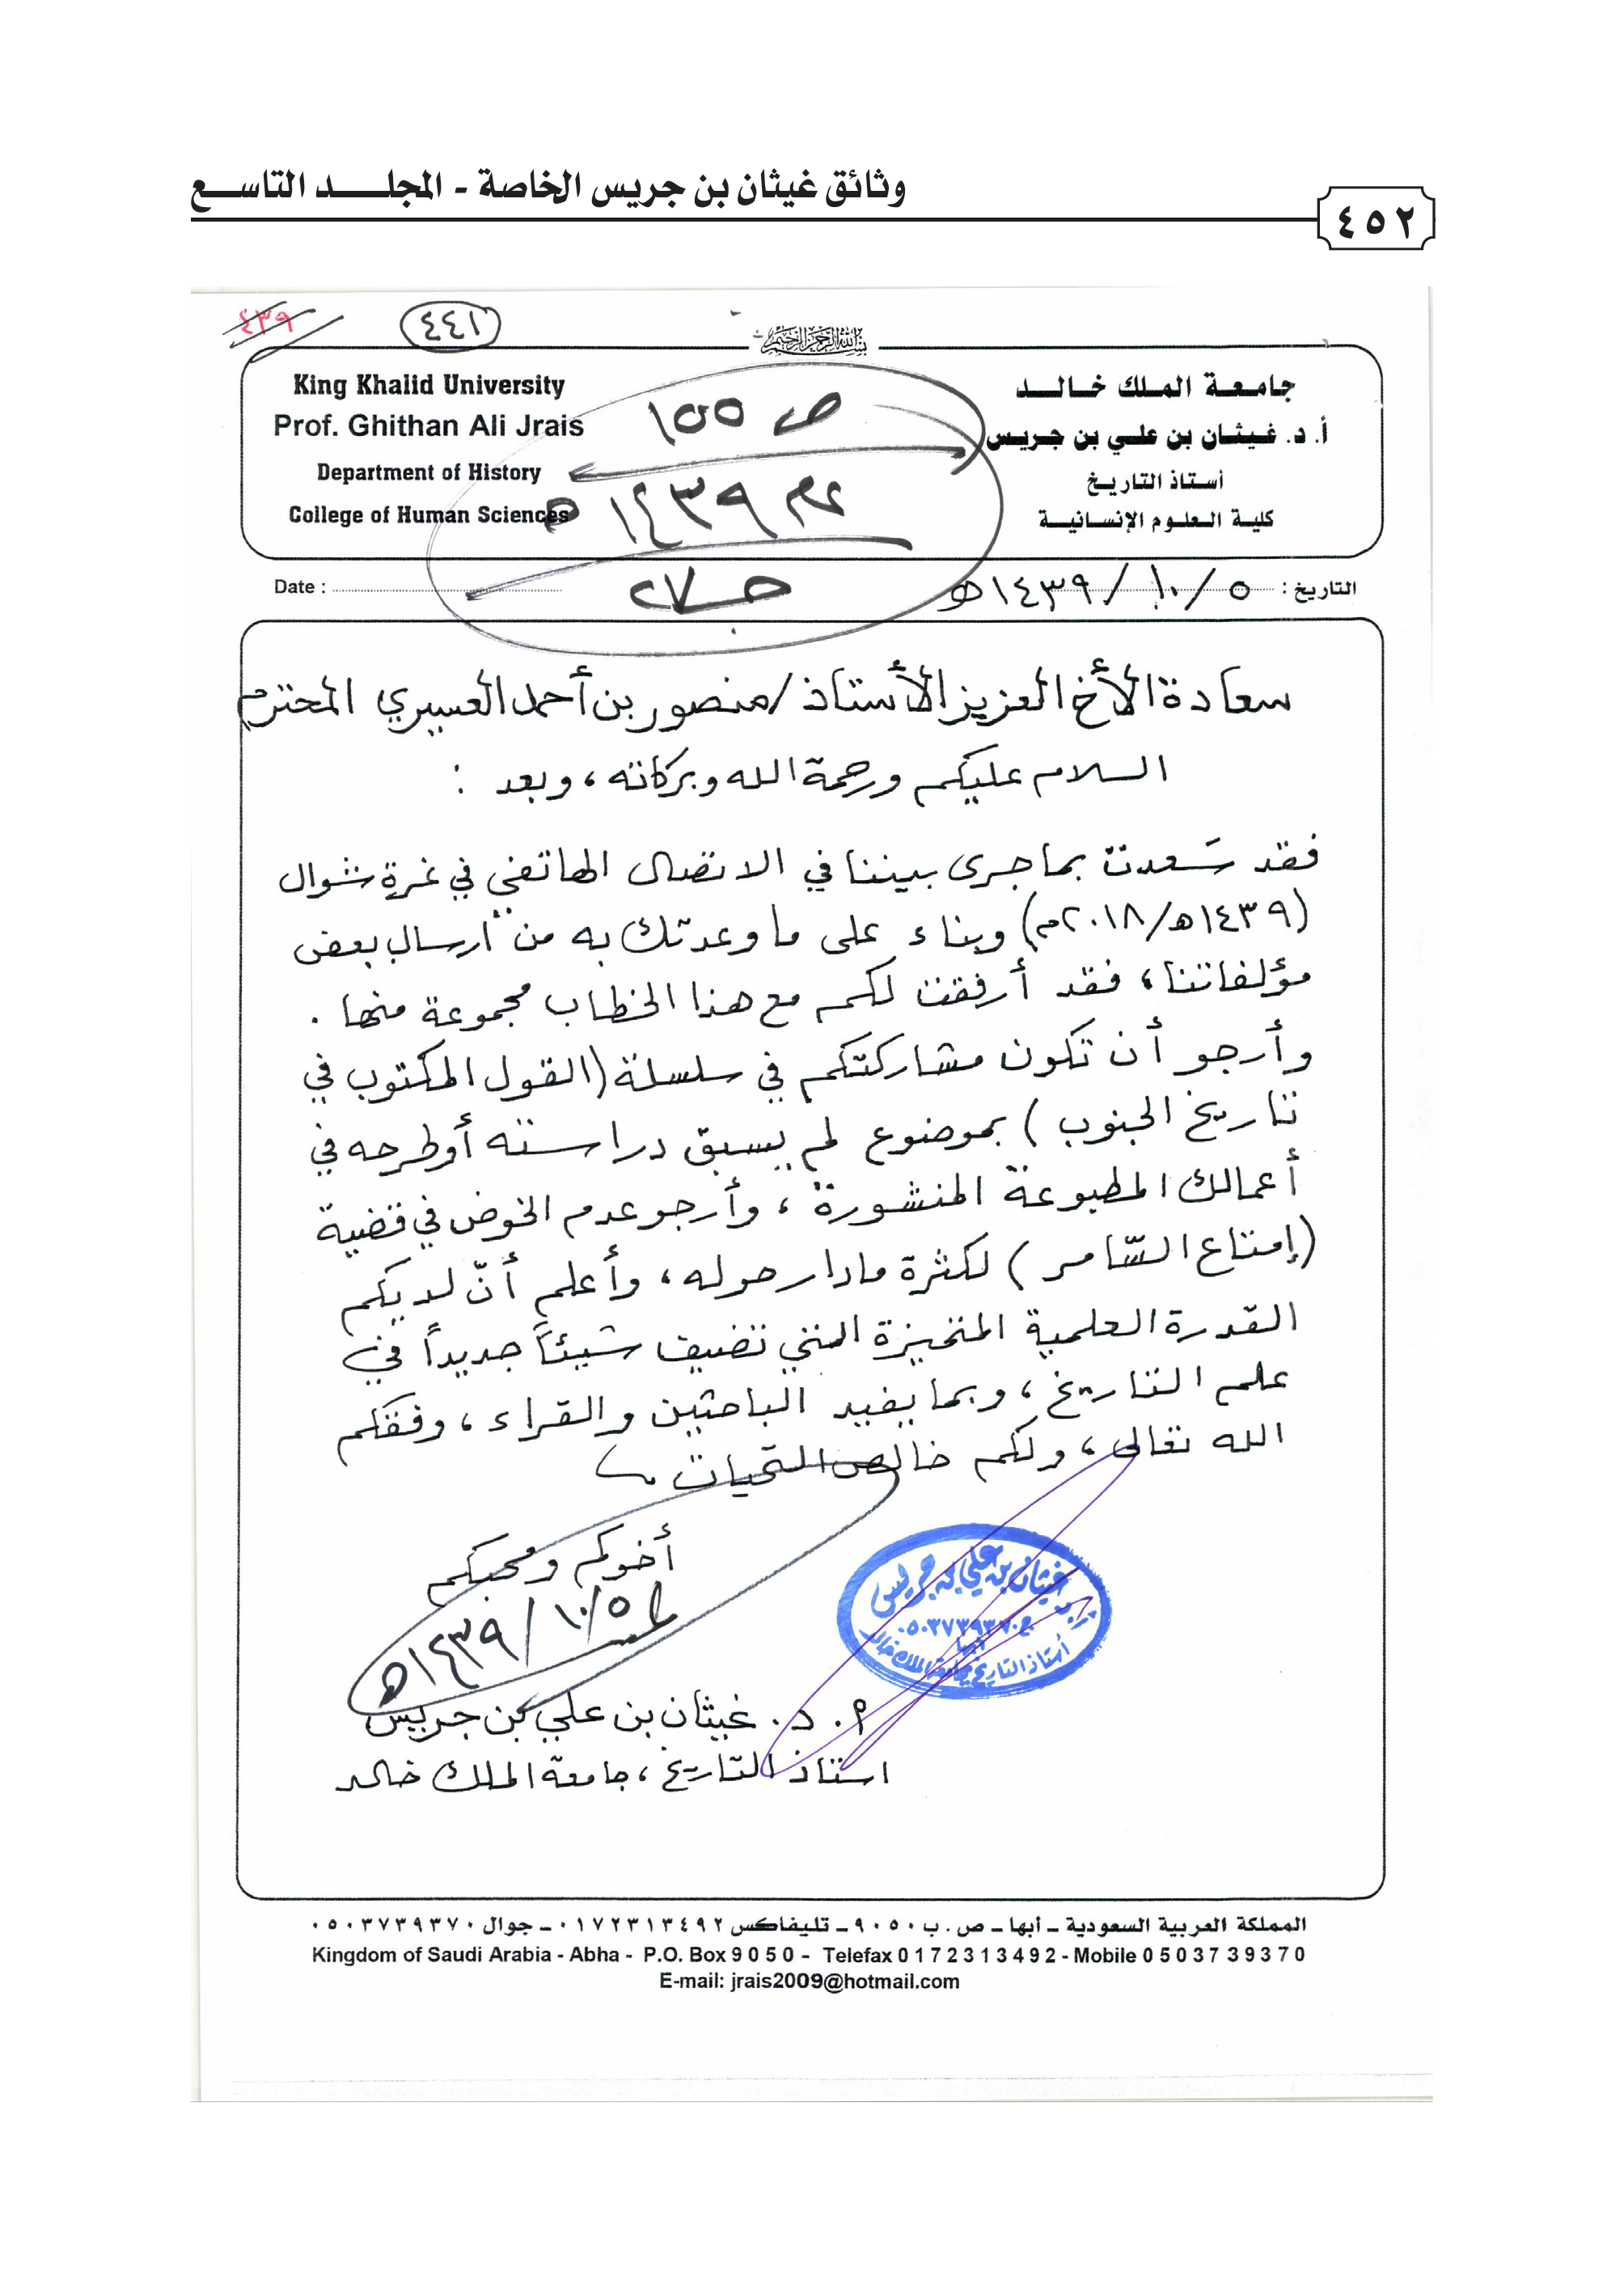 وثائق غيثان بن جريس الخاصة - المجلد التاسع
٤٥٢
٤٣٩
٤٤١
بسم الله الرحمن الرحيم
جامعة الملك خالد
أ. د. غيثان بن علي بن جريس
أستاذ التاريخ
كلية العلوم الإنسانية
King Khalid University
Prof. Ghithan Ali Jrais
Department of History
College of Human Sciences
ص ١٥٥
عام ١٤٣٩هـ
جـ٢٧
التاريخ : ٥ / ١٠ / ١٤٣٩هـ
Date :
سعادة الأخ العزيز الأستاذ / منصور بن أحمد العسيري المحترم
السلام عليكم ورحمة الله وبركاته ، وبعد :
فقد سَعدت بما جرى بيننا في الاتصال الهاتفي في غرة شوال
(١٤٣٩هـ/٢٠١٨م) وبناء على ما وعدتك به من ارسال بعض
مؤلفاتنا ، فقد أرفقت لكم مع هذا الخطاب مجموعة منها .
وأرجو أن تكون مشاركتكم في سلسلة (القول المكتوب في
تاريخ الجنوب ) بموضوع لم يسبق دراسته أو طرحه في
أعمالك المطبوعة المنشورة ، وأرجو عدم الخوض في قضية
(إمتاع السّامر ) لكثرة ما دار حوله ، وأعلم أنّ لديكم
القدرة العلمية المتميزة التي تضيف شيئاً جديداً في
علم التاريخ ، وبما يفيد الباحثين والقراء ، وفقكم
الله تعالى ، ولكم خالص التحيات
أخوكم ومحبكم
٥/١٠/١٤٣٩هـ
أ.د. غيثان بن علي بن جريس
ج ٠٥٠٣٧٣٩٣٧٠
أبها
أستاذ التاريخ بجامعة الملك خالد
أ. د. غيثان بن علي بن جريس
استاذ التاريخ ، جامعة الملك خالد
المملكة العربية السعودية - أبها - ص . ب ٩٠٥٠ - تليفاكس ٠١٧٢٣١٣٤٩٢ - جوال ٠٥٠٣٧٣٩٣٧٠
Kingdom of Saudi Arabia - Abha - P.O. Box 9 0 5 0 - Telefax 0 1 7 2 3 1 3 4 9 2 - Mobile 0 5 0 3 7 3 9 3 7 0
E-mail: jrais2009@hotmail.com